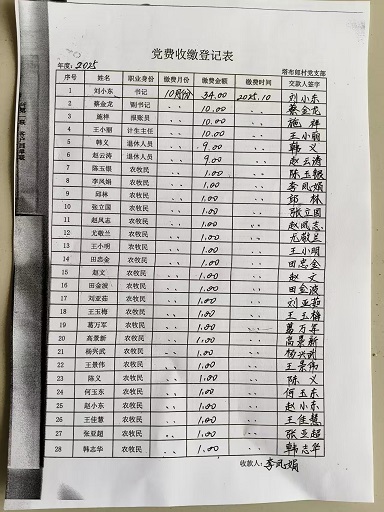 党费收缴登记表
年度：2025 塔布郎村党支部
序号 姓名 职业身份 缴费月份 缴费金额 缴费时间 交款人签字
1 刘小东 书记 10月份 34.00 2025.10 刘小东
2 蔡金龙 副书记 〃 10.00 〃 蔡金龙
3 施祥 报账员 〃 10.00 〃 施祥
4 王小丽 计生主任 〃 10.00 〃 王小丽
5 韩义 退休人员 〃 9.00 〃 韩义
6 赵云涛 退休人员 〃 9.00 〃 赵云涛
7 陈玉银 农牧民 〃 1.00 〃 陈玉银
8 李凤娟 农牧民 〃 1.00 〃 李凤娟
9 邱林 农牧民 〃 1.00 〃 邱林
10 张立国 农牧民 〃 1.00 〃 张立国
11 赵凤志 农牧民 〃 1.00 〃 赵凤志
12 尤敬兰 农牧民 〃 1.00 〃 尤敬兰
13 王小明 农牧民 〃 1.00 〃 王小明
14 田忠金 农牧民 〃 1.00 〃 田忠金
15 赵文 农牧民 〃 1.00 〃 赵文
16 田金波 农牧民 〃 1.00 〃 田金波
17 刘亚茹 农牧民 〃 1.00 〃 刘亚茹
18 王玉梅 农牧民 〃 1.00 〃 王玉梅
19 葛万军 农牧民 〃 1.00 〃 葛万军
20 高景新 农牧民 〃 1.00 〃 高景新
21 杨兴武 农牧民 〃 1.00 〃 杨兴武
22 王景伟 农牧民 〃 1.00 〃 王景伟
23 陈义 农牧民 〃 1.00 〃 陈义
24 何玉东 农牧民 〃 1.00 〃 何玉东
25 赵小东 农牧民 〃 1.00 〃 赵小东
26 王佳慧 农牧民 〃 1.00 〃 王佳慧
27 张亚超 农牧民 〃 1.00 〃 张亚超
28 韩志华 农牧民 〃 1.00 〃 韩志华
收款人：李凤娟